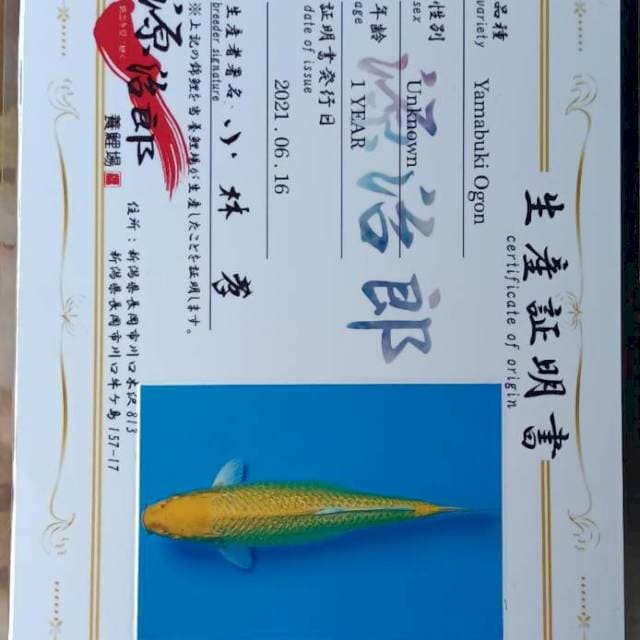 生産証明書
certificate of origin
品種 Yamabuki Ogon
variety
性別 Unknown
sex
年齢 1 YEAR
age
証明書発行日
date of issue
2021 . 06 . 16
源治郎
生産者署名: 小林
breeder signature
※上記の錦鯉を当養鯉場が生産したことを証明します。
源治郎
養鯉場
住所：新潟県長岡市川口木沢813
新潟県長岡市川口牛ケ島157-17